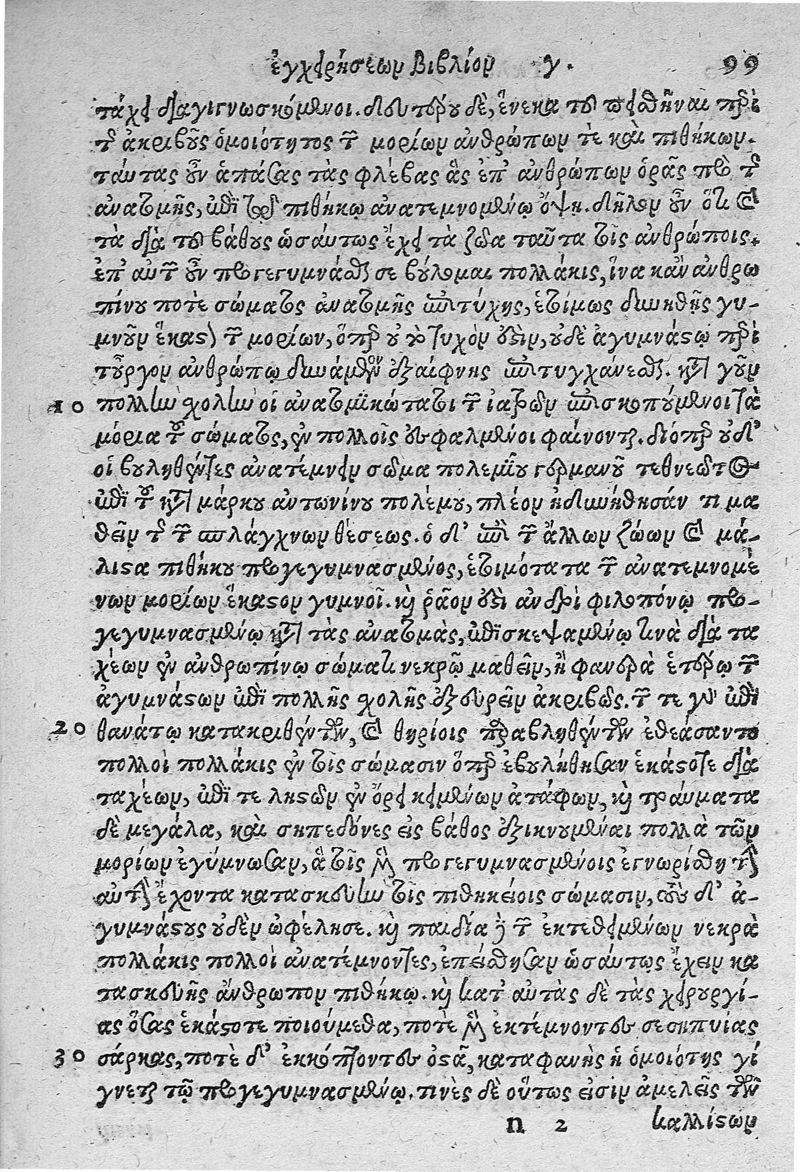 ἐγχειρήσεων βιβλίον γ. 99
τάχει διαγιγνωσκόμενοι. δευτέρου δὲ, ἕνεκα τοῦ πεισθῆναι περὶ
τῆς ἀκριβοῦς ὁμοιότητος τῶν μορίων ἀνθρώπων τὲ καὶ πιθήκων.
ταύτας οὖν ἁπάσας τὰς φλέβας ἃς ἐπ' ἀνθρώπων ὁρᾷς πρὸ τῆς
ἀνατομῆς, ἐπὶ τῷ πιθήκῳ ἀνατεμνομένῳ ὄψῃ. δῆλον οὖν ὅτι καὶ
τὰ διὰ τοῦ βάθους ὡσαύτως ἔχει τὰ ζῶα ταῦτα τοῖς ἀνθρώποις.
ἐπ' αὐτῶν οὖν προγεγυμνάσθαι σε βούλομαι πολλάκις, ἵνα κἂν ἀνθρω
πίνου ποτὲ σώματος ἀνατομῆς ἐπιτύχῃς, ἑτοίμως δυνηθῇς γυ-
μνοῦν ἕκαστον τῶν μορίων, ὅπερ οὐ τὸ τυχὸν ἐστὶν, οὐδὲ ἀγυμνάστῳ περὶ
τοὖργον ἀνθρώπῳ δυνάμενον ἐξαίφνης ἐπιτυγχάνεσθαι. κατὰ γοῦν
10 πολλὴν σχολὴν οἱ ἀνατομικώτατοι τῶν ἰατρῶν ἐπισκοπούμενοι τὰ
μόρια τοῦ σώματος, ἐν πολλοῖς ἐσφαλμένοι φαίνονται. διόπερ οὐδ'
οἱ βουληθέντες ἀνατέμνειν σῶμα πολεμίου γερμανοῦ τεθνεῶτος
ἐπὶ τοῦ κατὰ μάρκου ἀντωνίνου πολέμου, πλέον ἠδυνήθησάν τι μα
θεῖν τῆς τῶν σπλάγχνων θέσεως. ὁ δ' ἐπὶ τῶν ἄλλων ζώων καὶ μά-
λιστα πιθήκου προγεγυμνασμένος, ἑτοιμότατα τῶν ἀνατεμνομέ
νων μορίων ἕκαστον γυμνοῖ. καὶ ῥᾷον ἐστὶ ἀνδρὶ φιλοπόνῳ προ-
γεγυμνασμένῳ κατὰ τὰς ἀνατομὰς, ἐπισκεψαμένῳ τινὰ διὰ τα
χέων ἐν ἀνθρωπίνῳ σώματι νεκρῷ μαθεῖν, ἢ φανερὰ ἑτέρῳ τῶν
ἀγυμνάστων ἐπὶ πολλῆς σχολῆς ἐξευρεῖν ἀκριβῶς. τῶν τε γὰρ ἐπὶ
20 θανάτῳ κατακριθέντων, καὶ θηρίοις παραβληθέντων ἐθεάσαντο
πολλοὶ πολλάκις ἐν τοῖς σώμασιν ὅπερ ἐβουλήθησαν ἑκάστοτε διὰ
ταχέων, ἐπί τε λῃστῶν ἐν ὄρει κειμένων ἀτάφων, καὶ τραύματα
δὲ μεγάλα, καὶ σηπεδόνες εἰς βάθος ἐξικνούμεναι πολλὰ τῶν
μορίων ἐγύμνωσαν, ἃ τοῖς μὲν προγεγυμνασμένοις ἐγνωρίσθη τὴν
αὐτὴν ἔχοντα κατασκευὴν τοῖς πιθηκείοις σώμασιν, τοὺς δ' ἀ-
γυμνάστους οὐδὲν ὠφέλησε. καὶ παιδία δὲ τῶν ἐκτεθειμένων νεκρὰ
πολλάκις πολλοὶ ἀνατέμνοντες, ἐπείσθησαν ὡσαύτως ἔχειν κα
τασκευῆς ἄνθρωπον πιθήκῳ. καὶ κατ' αὐτὰς δὲ τὰς χειρουργί-
ας ὅσας ἑκάστοτε ποιούμεθα, ποτὲ μὲν ἐκτέμνοντες σεσηπυίας
30 σάρκας, ποτὲ δ' ἐκκόπτοντες ὀστᾶ, καταφανὴς ἡ ὁμοιότης γί
γνεται τῷ προγεγυμνασμένῳ. τινὲς δὲ οὕτως εἰσιν ἀμελεῖς τῶν
n 2 καλλίστων